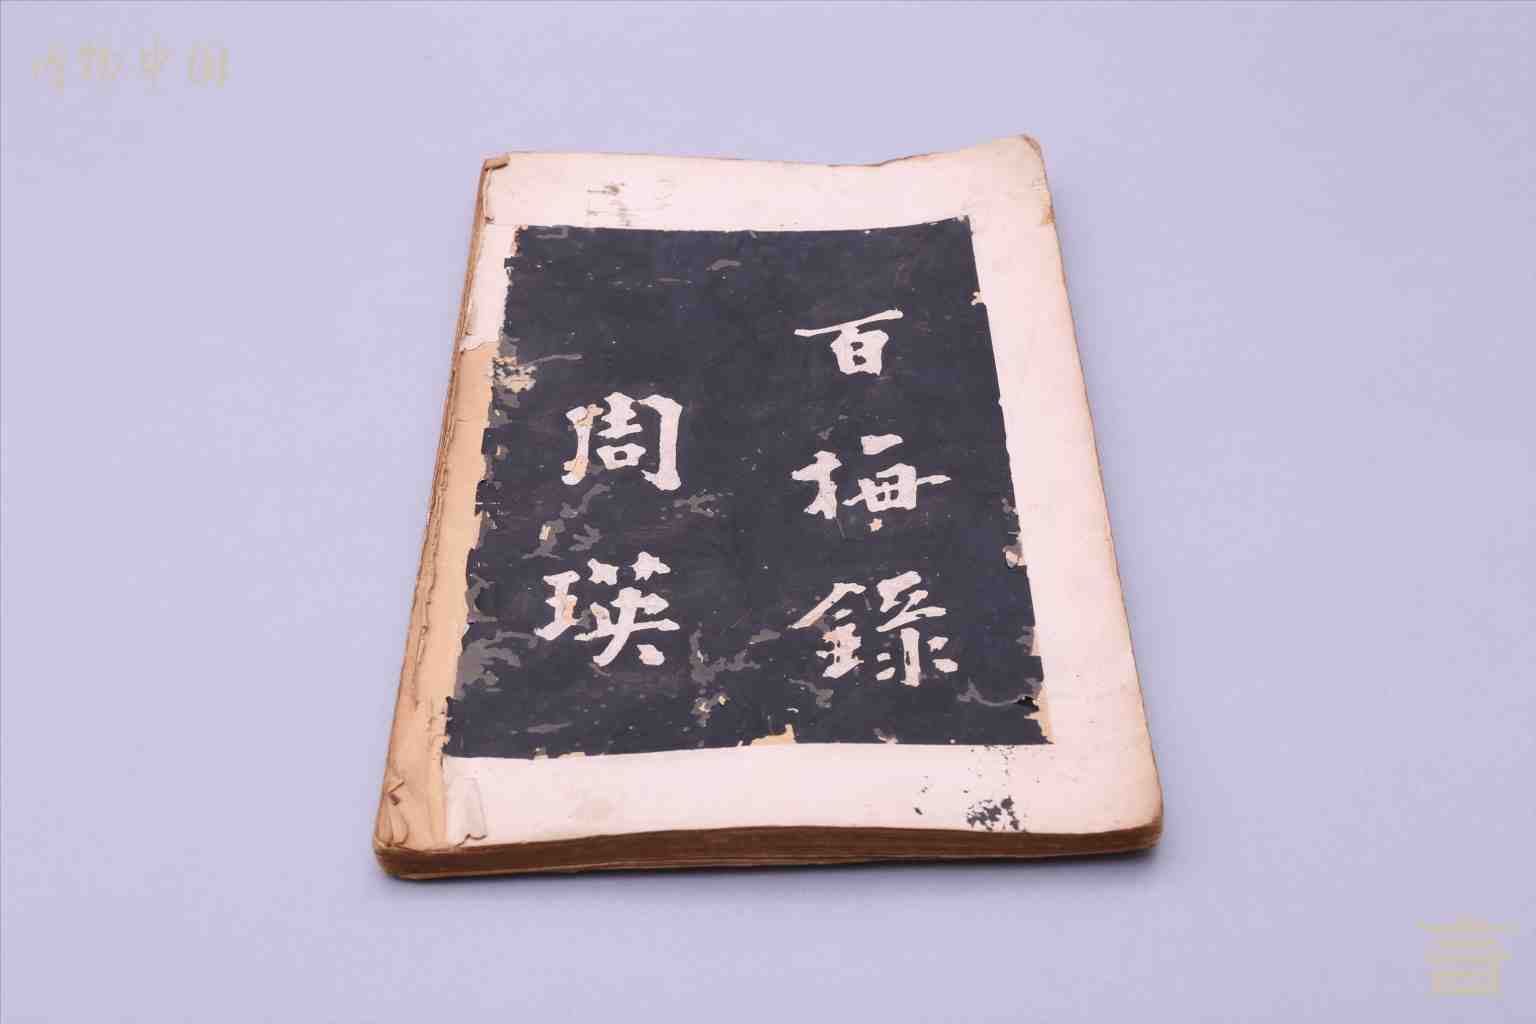 百梅錄
周瑛
博物中国